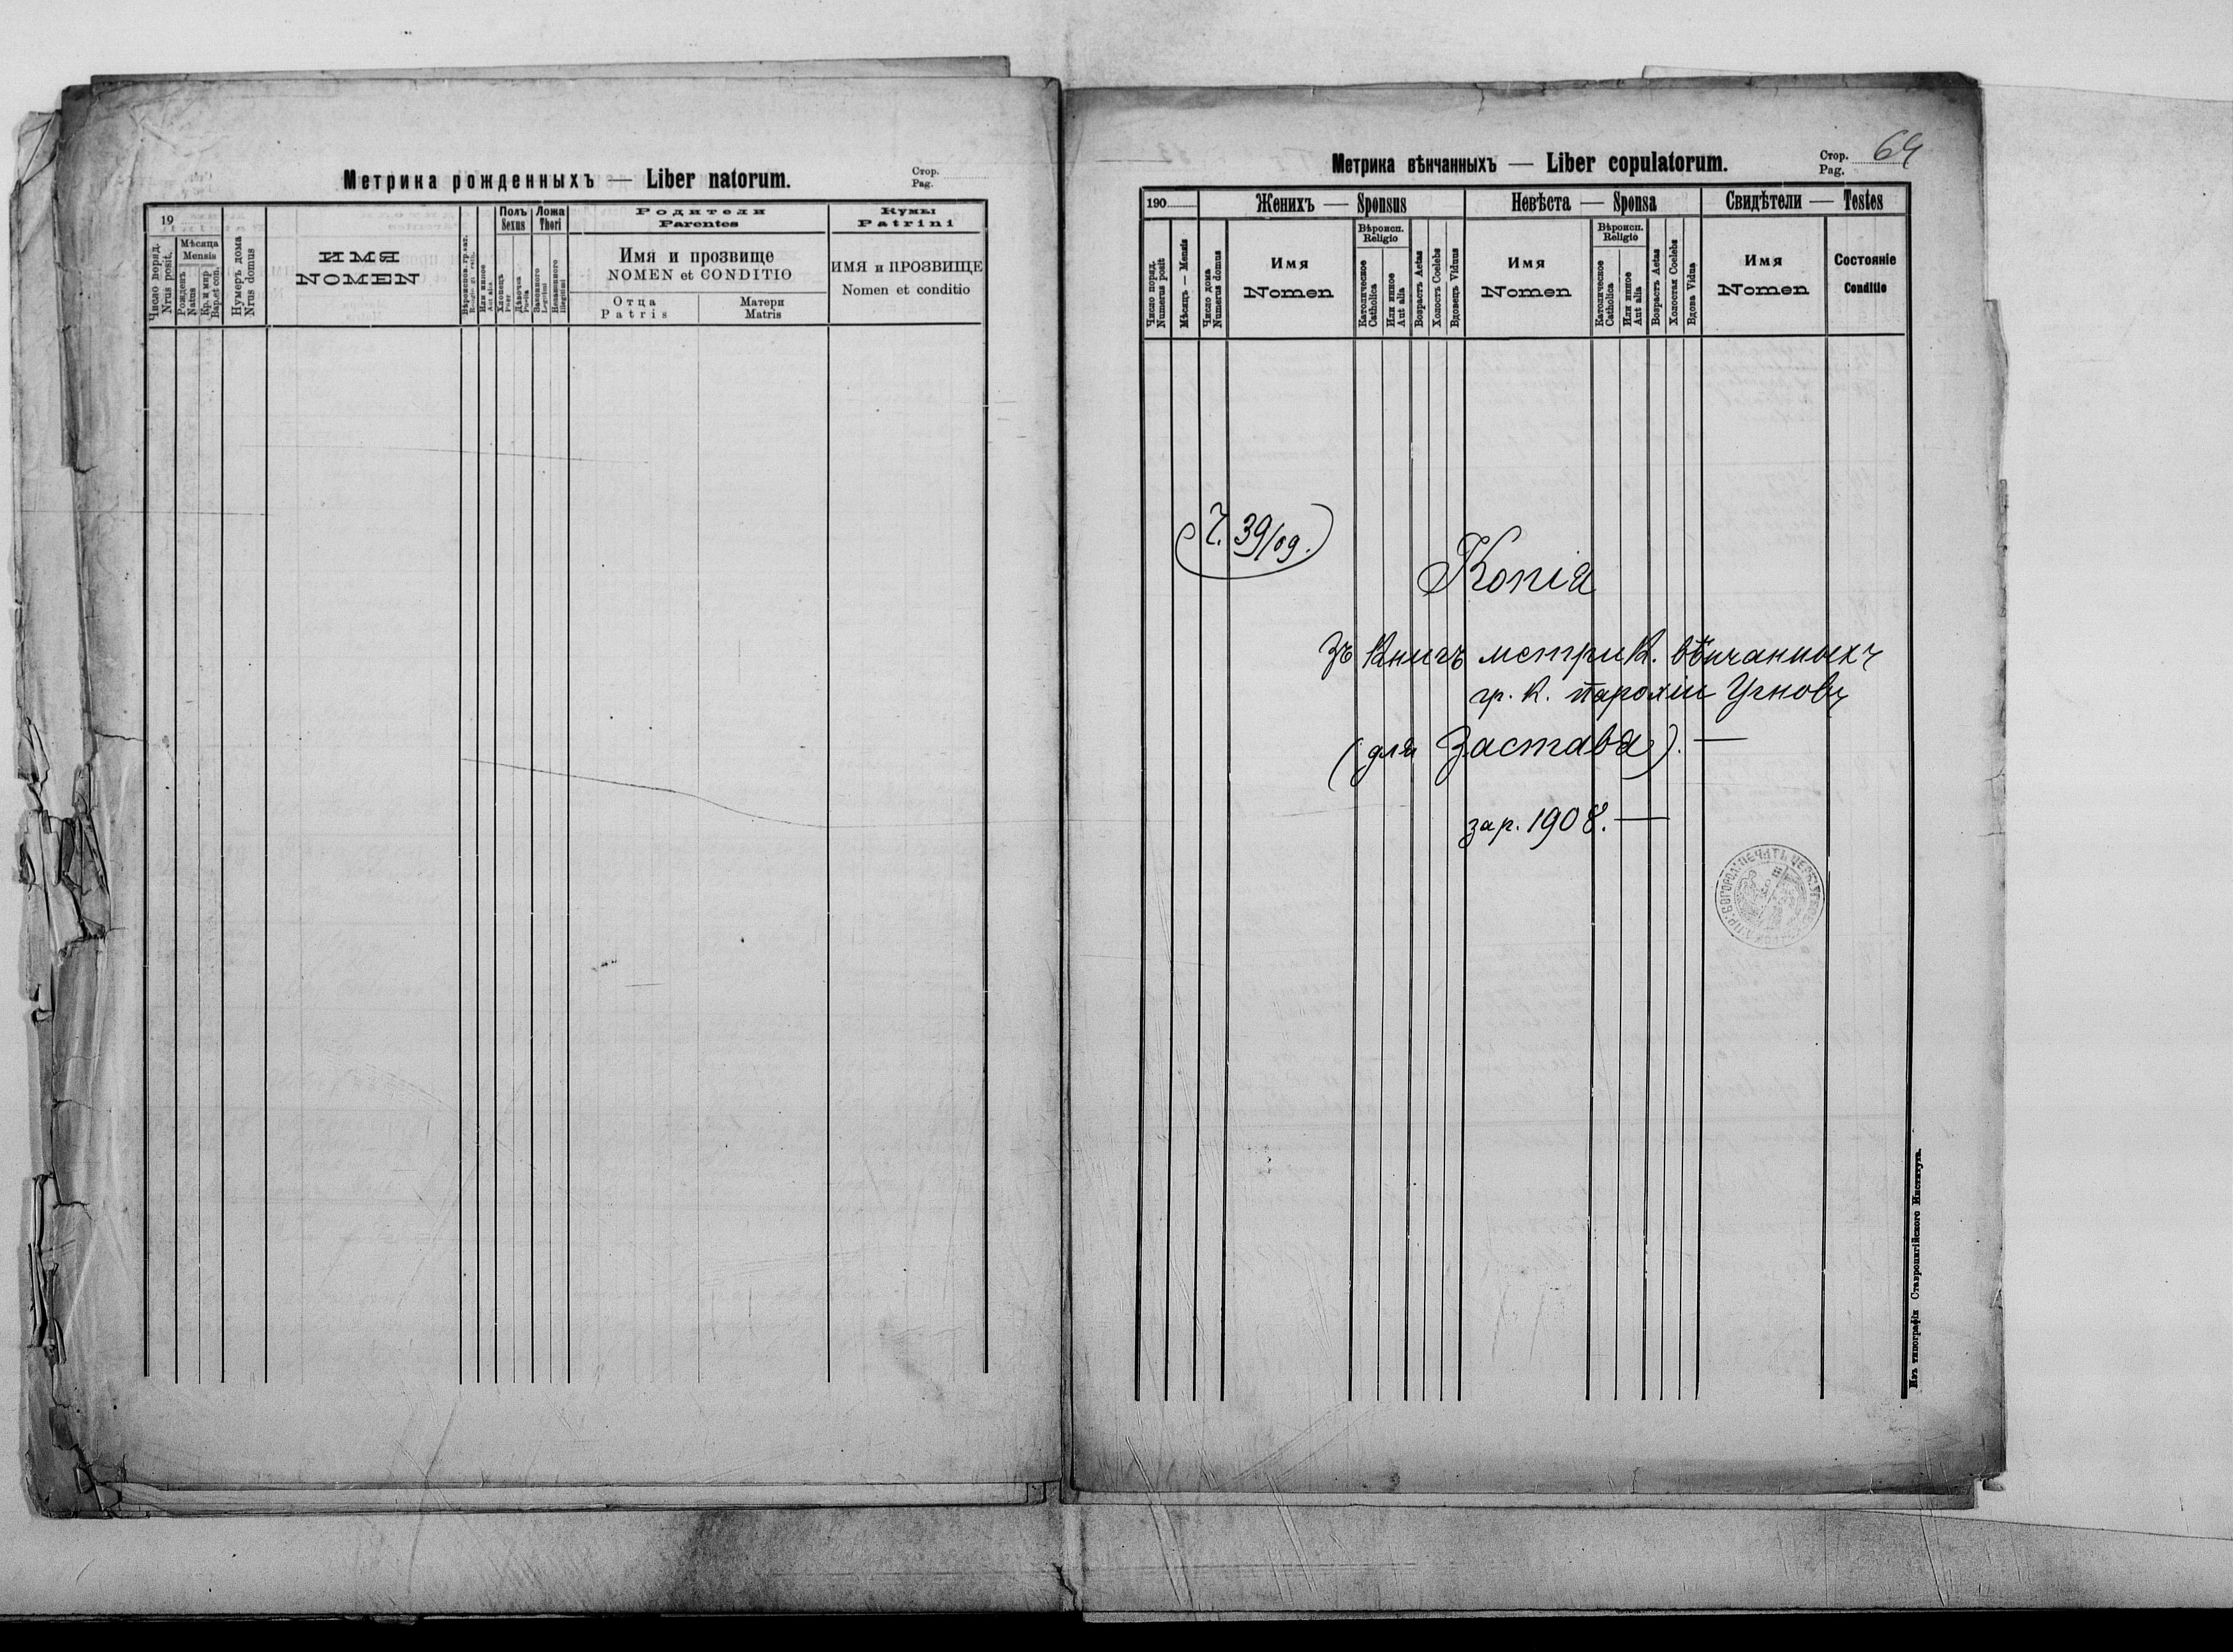 Метрика рожденныхъ — Liber natorum.
Стор.
Pag.
19
Число поряд.
Nrus posit.
Мѣсяца
Mensis
Рожденъ
Natus
Кр. и мир
Bap. et con.
Нумеръ дома
Nrus domus
ИМЯ
NOMEN
Или инное
Aut alia
Полъ
Sexus
Хлопецъ
Puer
Дѣвочка
Puella
Ложа
Thori
Законного
Legitimi
Незаконного
Illegitimi
Родители
Parentes
Имя и прозвище
NOMEN et CONDITIO
Отца
Patris
Матери
Matris
Кумы
Patrini
ИМЯ и ПРОЗВИЩЕ
Nomen et conditio
Метрика вѣнчанныхъ — Liber copulatorum.
Стор. 64
Pag.
190
Число поряд.
Numerus posit
Мѣсяцъ — Mensis
Число дома
Numerus domus
Женихъ — Sponsus
Имя
Nomen
Вѣроисп.
Religio
Католическое
Catholica
Или инное
Aut alia
Возрастъ Aetas
Холостъ Coelebs
Вдовецъ Viduus
Невѣста — Sponsa
Имя
Nomen
Вѣроисп.
Religio
Католическое
Catholica
Или инное
Aut alia
Возрастъ Aetas
Холостая Coelebs
Вдова Vidua
Свидѣтели — Testes
Имя
Nomen
Состояніе
Conditio
Ч. 39/09.
Копія
Зъ книгъ метрик. вѣнчанныхъ
гр. к. парохіи Угновъ
(для Застава). —
за р. 1908. —
Изъ типографіи Ставропигійского Института.